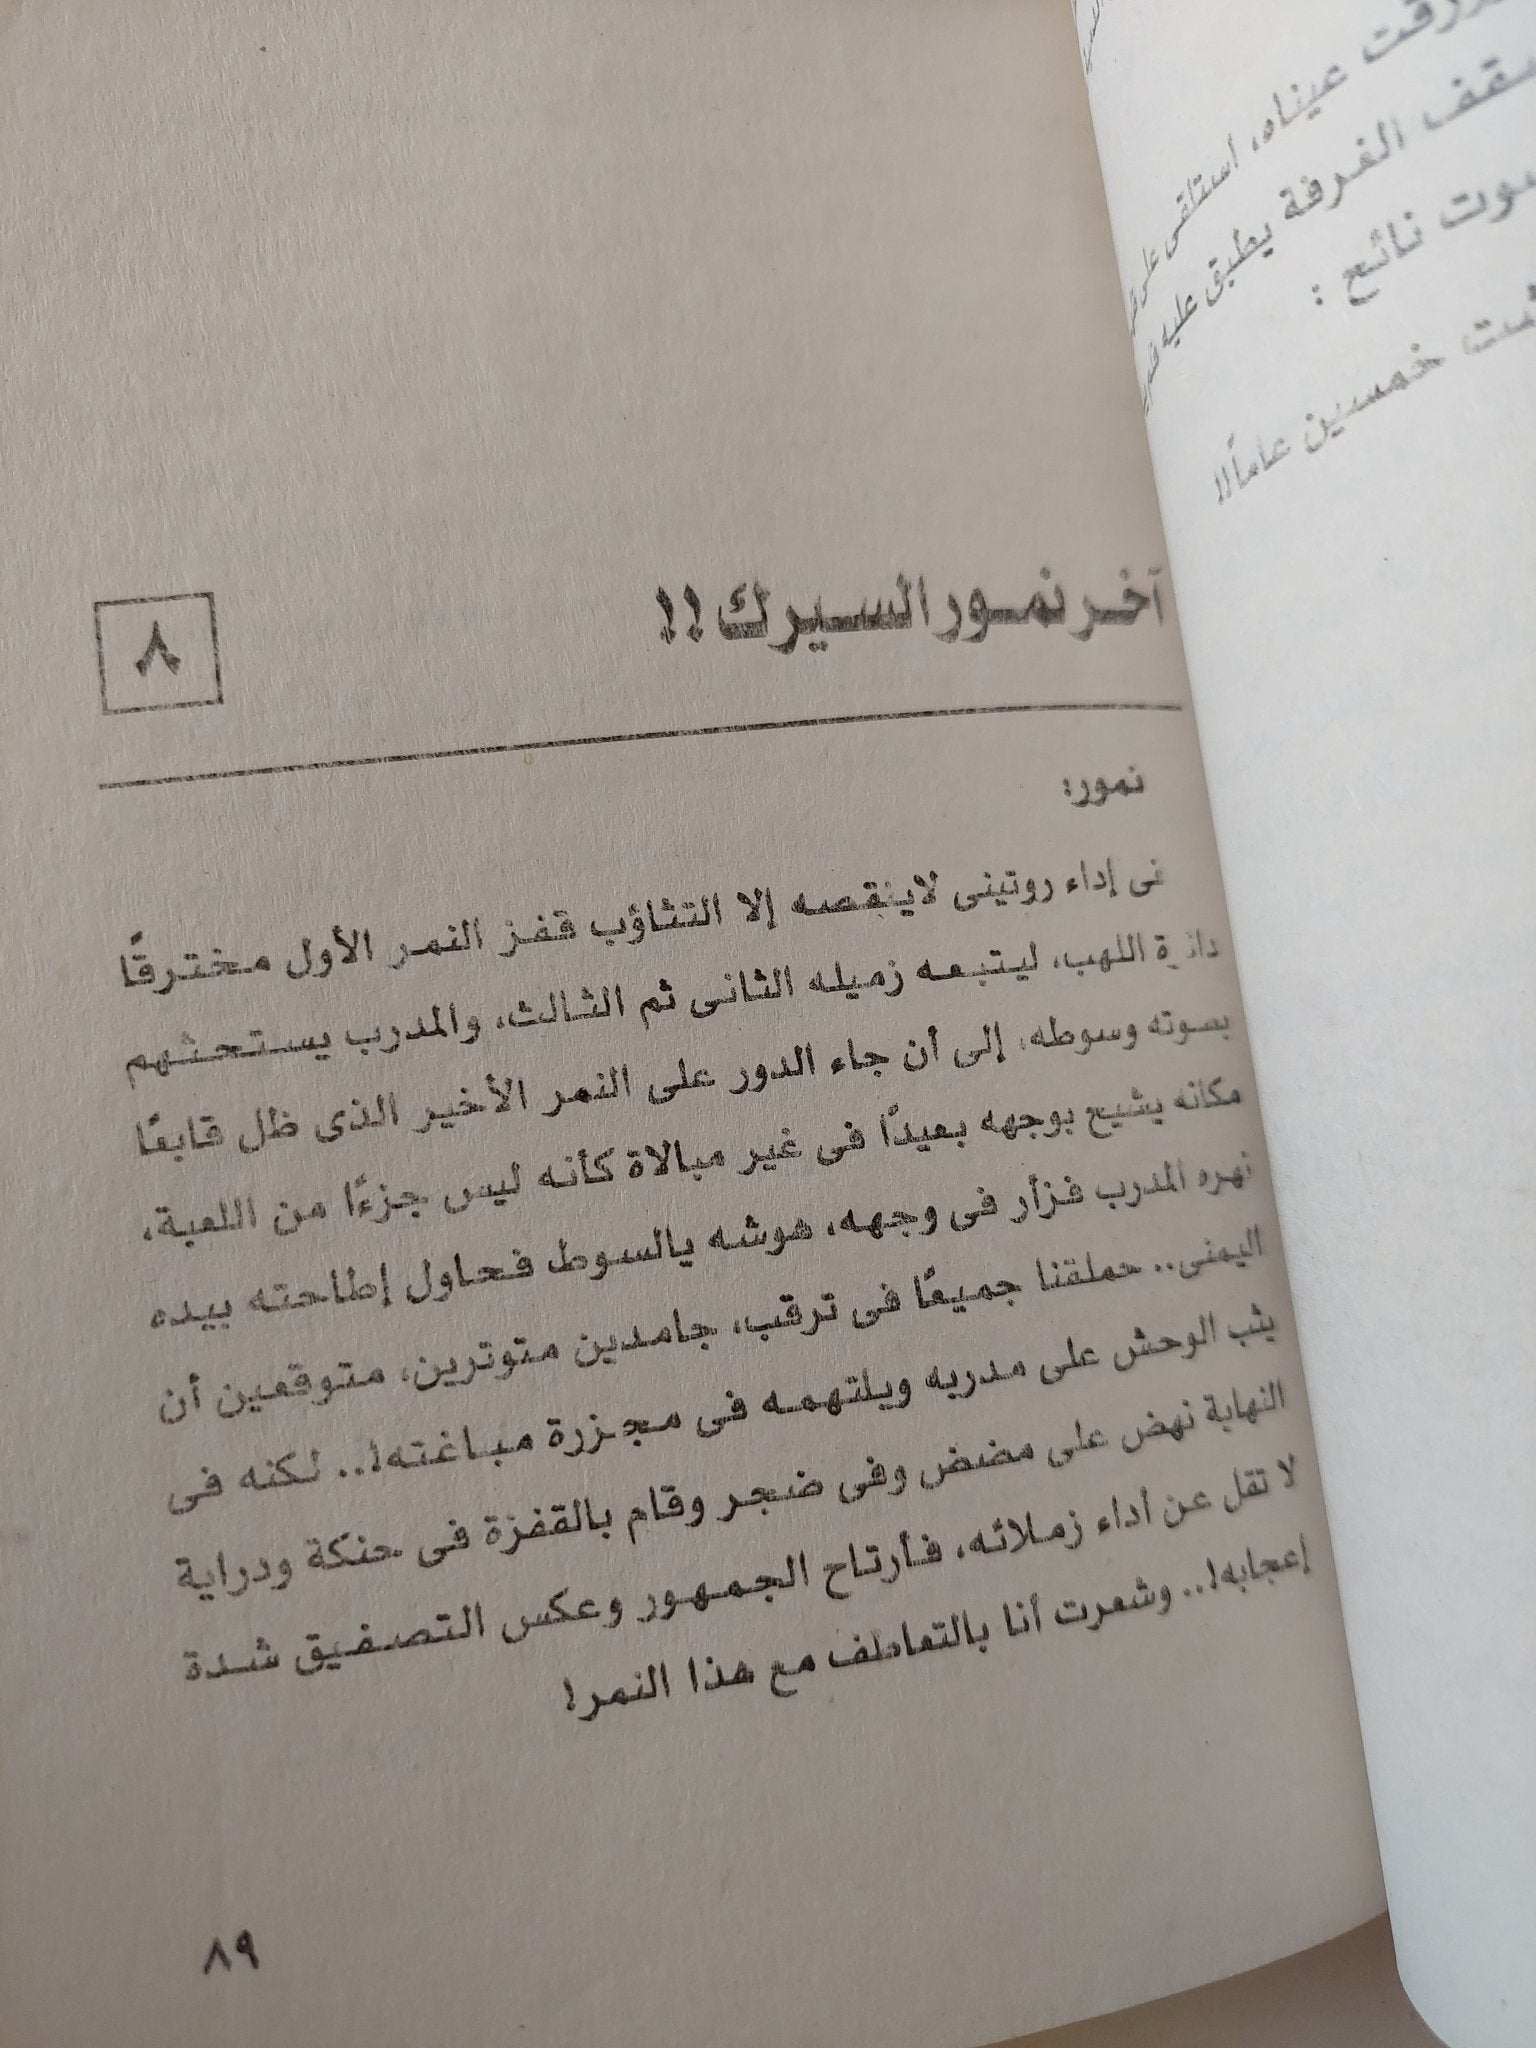 عيناه، استلقى على
سقف الغرفة يطبق عليه
نائع :
خمسين عاماً!!
آخر نمور السيرك !!
٨
نمور:
فى إداء روتينى لاينقصه إلا التثاؤب قفز النمر الأول مخترقًا
دائرة اللهب، ليتبعه زميله الثانى ثم الثالث، والمدرب يستحثهم
بصوته وسوطه، إلى أن جاء الدور على النمر الأخير الذى ظل قابعًا
مكانه يشيح بوجهه بعيدًا فى غير مبالاة كأنه ليس جزءًا من اللعبة،
نهره المدرب فزأر فى وجهه، هوشه يالسوط فحاول إطاحته بيده
اليمنى.. حملقنا جميعًا فى ترقب، جامدين متوترين، متوقعين أن
يثب الوحش على مدربه ويلتهمه فى مجزرة مباغته!.. لكنه فى
النهاية نهض على مضض وفى ضجر وقام بالقفزة فى حنكة ودراية
لا تقل عن أداء زملائه، فأرتاح الجمهور وعكس التصفيق شدة
إعجابه!.. وشعرت أنا بالتعاطف مع هذا النمر!
٨٩